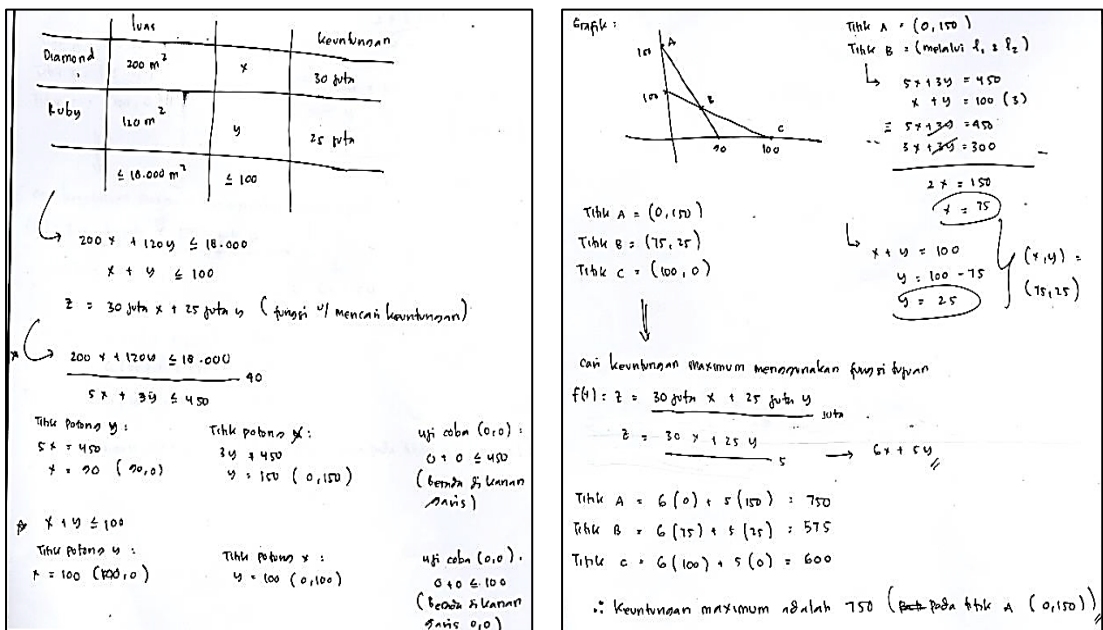 luas keuntungan
Diamond 200 m² x 30 juta
Ruby 120 m² y 25 juta
≤ 18.000 m² ≤ 100
200 x + 120 y ≤ 18.000
x + y ≤ 100
z = 30 juta x + 25 juta y (fungsi u/ mencari keuntungan)
200 x + 120 y ≤ 18.000
40
5x + 3y ≤ 450
Titik potong y : Titik potong x : uji coba (0,0) :
5x = 450 3y = 450 0 + 0 ≤ 450
x = 90 (90,0) y = 150 (0,150) (berada di kanan
garis)
x + y ≤ 100
Titik potong y : Titik potong x : uji coba (0,0) .
x = 100 (100,0) y = 100 (0,100) 0+0 ≤ 100
(berada di kanan
garis 0,0)
Grafik :
150 A
100 B
90 100 C
Titik A = (0,150)
Titik B = (melalui l₁ & l₂)
5x + 3y = 450
x + y = 100 (3)
= 5x + 3y = 450
3x + 3y = 300 -
2x = 150
x = 75
x + y = 100
y = 100 - 75
y = 25
(x,y) =
(75,25)
Titik A = (0,150)
Titik B = (75,25)
Titik C = (100,0)
cari keuntungan maximum menggunakan fungsi tujuan
f(t) : z = 30 juta x + 25 juta y
juta
z = 30 x + 25 y
5 → 6x + 5y //
Titik A = 6 (0) + 5 (150) : 750
Titik B = 6 (75) + 5 (25) : 575
Titik C = 6 (100) + 5 (0) = 600
∴ Keuntungan maximum adalah 750 (pada titik A (0,150)) //